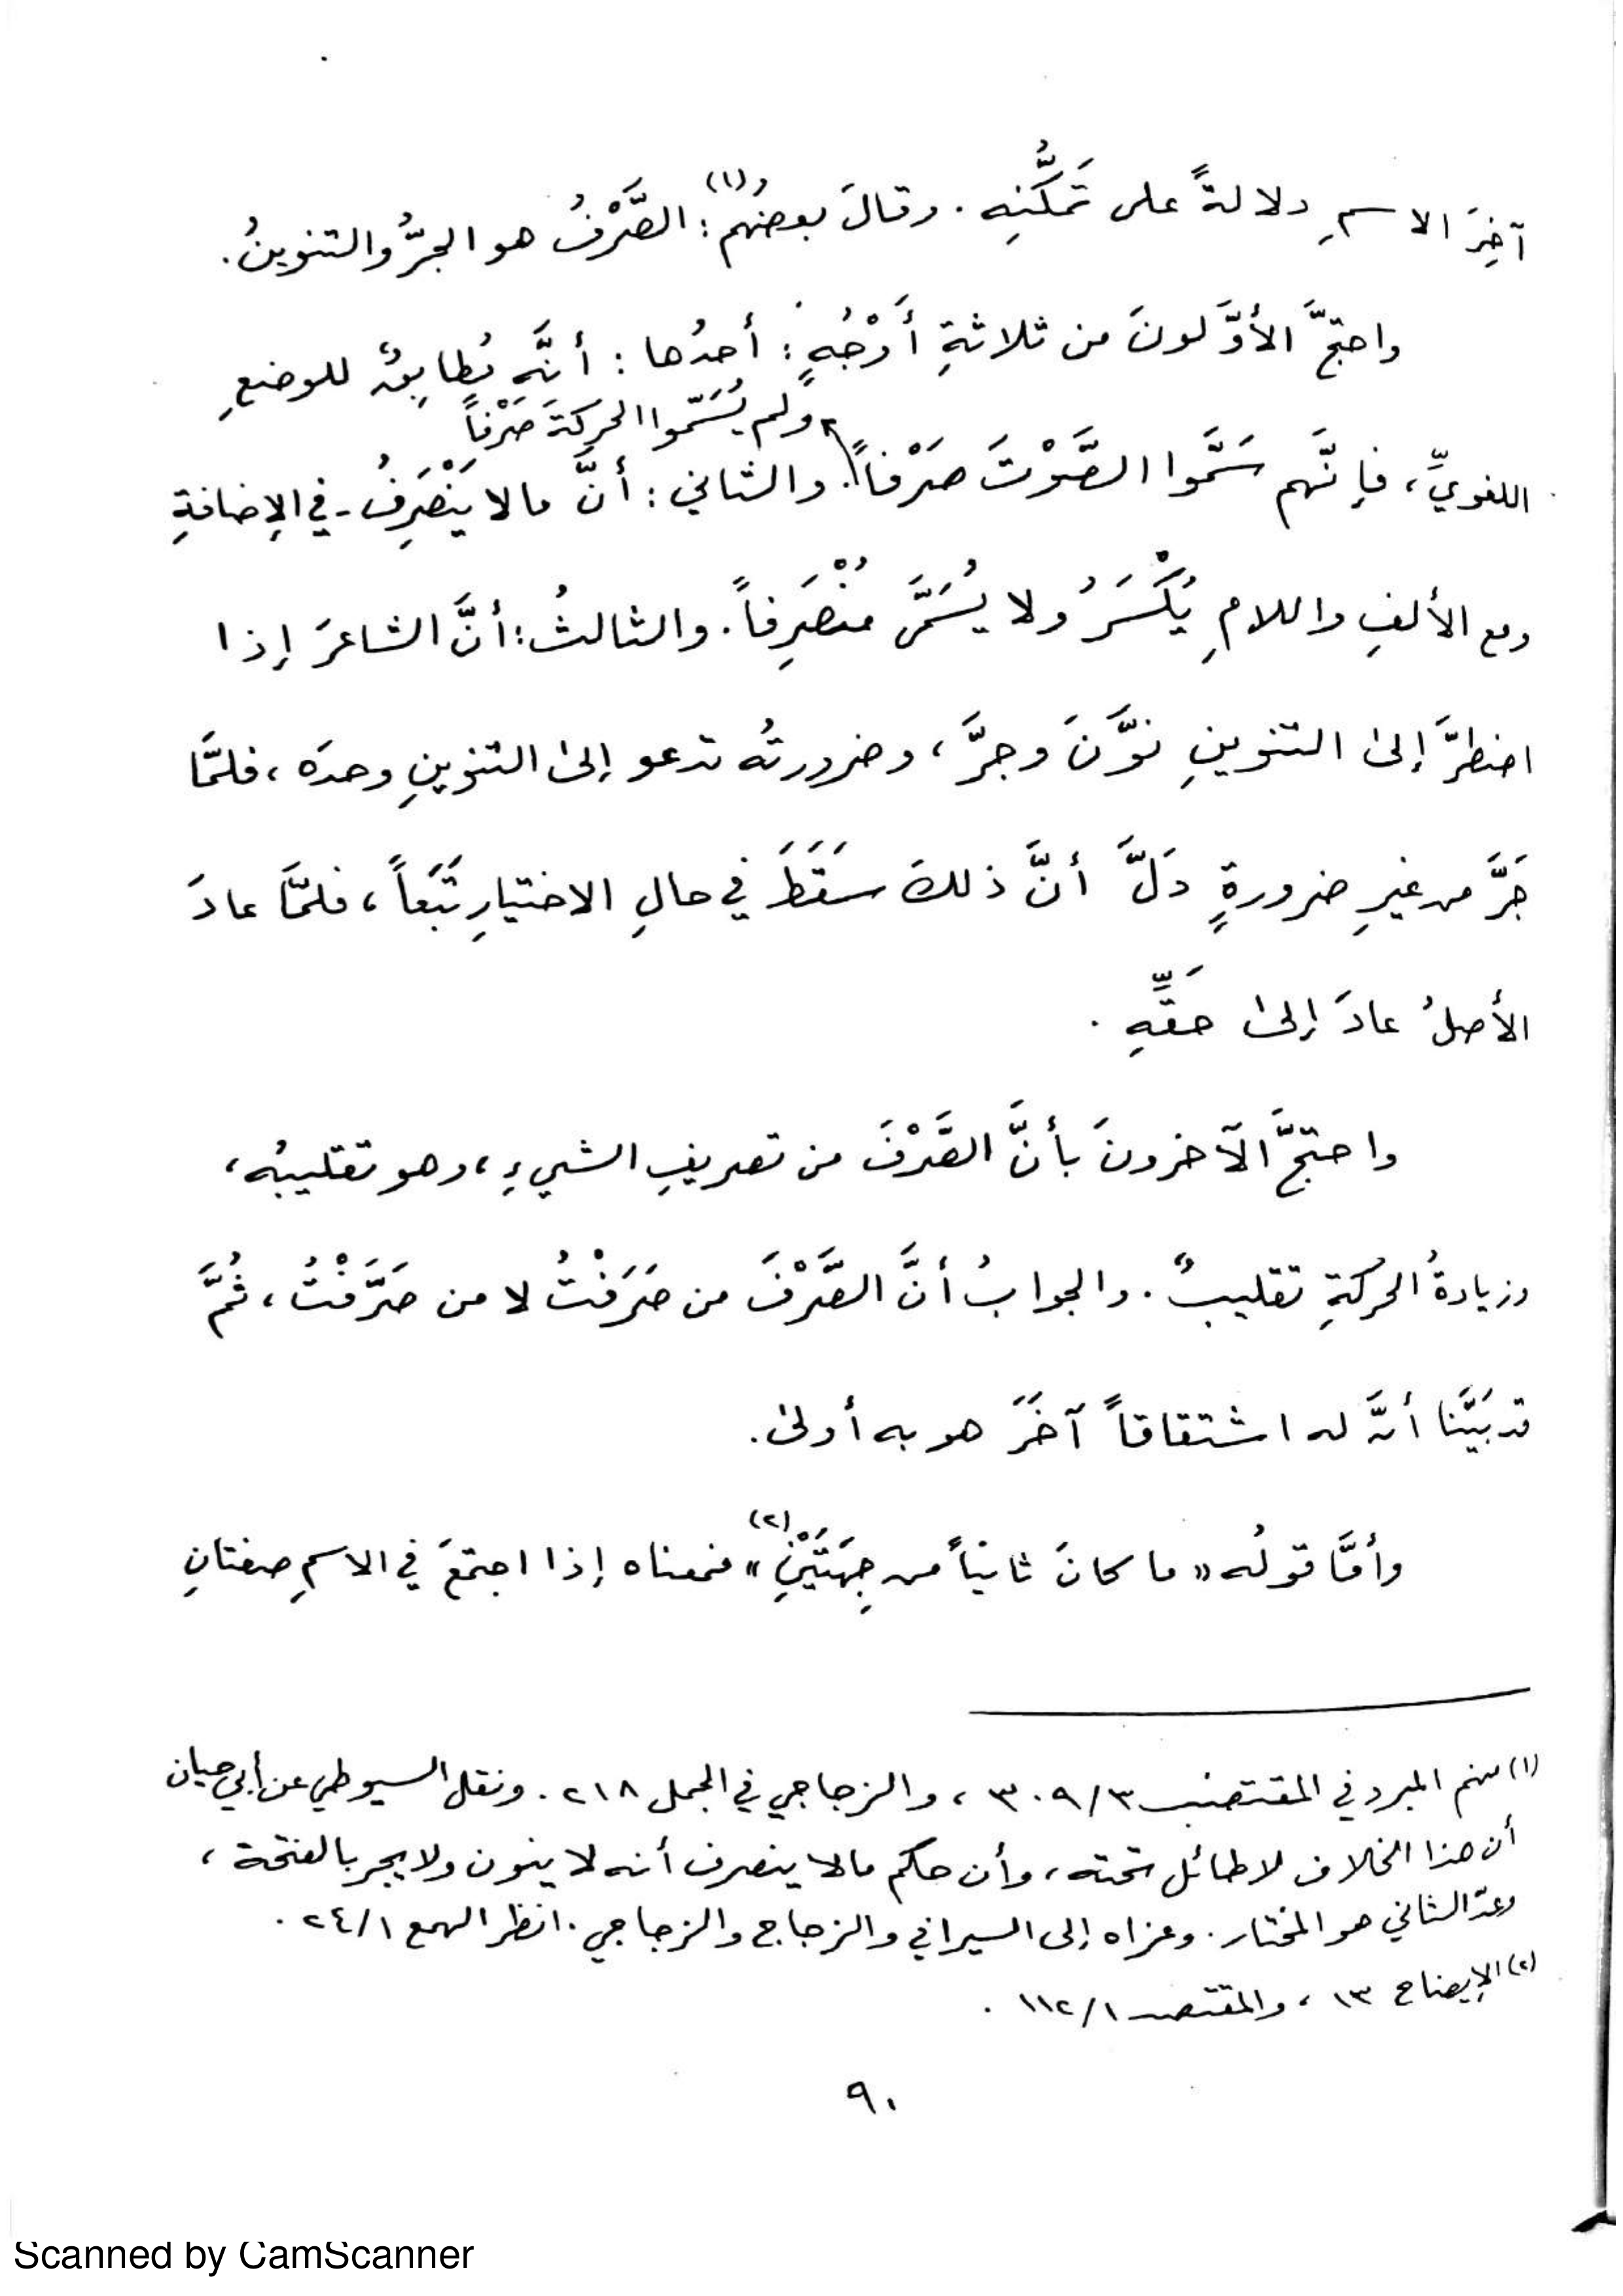 آخِرَ الاسمِ دلالةً على تَمَكُّنِه. وقالَ بعضُهُم(١): الصَّرْفُ هو الجرُّ والتنوينُ.
واحتجَّ الأوَّلونَ من ثلاثةِ أَوْجُهٍ: أحدُها: أنَّه مُطابِقٌ للوضعِ
ولم يُسَمّوا الحركةَ صَرْفاً
اللغويِّ، فإنَّهم سَمَّوا الصَّوْتَ صَرْفاً. والثاني: أنَّ مالا يَنْصَرِفُ - في الإضافةِ
ومع الألفِ واللامِ يُكْسَرُ ولا يُسَمَّى مُنْصَرِفاً. والثالثُ: أنَّ الشاعرَ إذا
اضطرَّ إلى التنوينِ نوَّنَ وجرَّ، وضرورتُه تدعو إلى التنوينِ وحدَه، فلمَّا
جَرَّ من غيرِ ضرورةٍ دَلَّ أنَّ ذلك سَقَطَ في حالِ الاختيارِ تَبَعاً، فلمَّا عادَ
الأصلُ عادَ إلى حَقِّهِ.
واحتجَّ الآخرونَ بأنَّ الصَّرْفَ من تصريفِ الشيءِ، وهو تقليبُه،
وزيادةُ الحركةِ تقليبٌ. والجوابُ أنَّ الصَّرْفَ من صَرَفْتُ لا من صَرَّفْتُ، ثُمَّ
قد بَيَّنا أنَّ له اشتقاقاً آخَرَ هو به أولى.
وأمَّا قولُه «ما كانَ ثانياً من جِهَتَيْنِ»(٢) فمعناه إذا اجتمعَ في الاسمِ صفتانِ
(١) منهم المبرد في المقتضب ٣٠٩/٣، والزجاجي في الجمل ٢١٨. ونقل السيوطي عن أبي حيان
أن هذا الخلاف لا طائل تحته، وأن حكم مالا ينصرف أنه لا ينون ولا يجر بالفتحة،
وعدّ الثاني هو المختار. وعزاه إلى السيرافي والزجاج والزجاجي. انظر الهمع ٢٤/١.
(٢) الإيضاح ١٣، والمقتصد ١١٢/١.
٩٠
Scanned by CamScanner